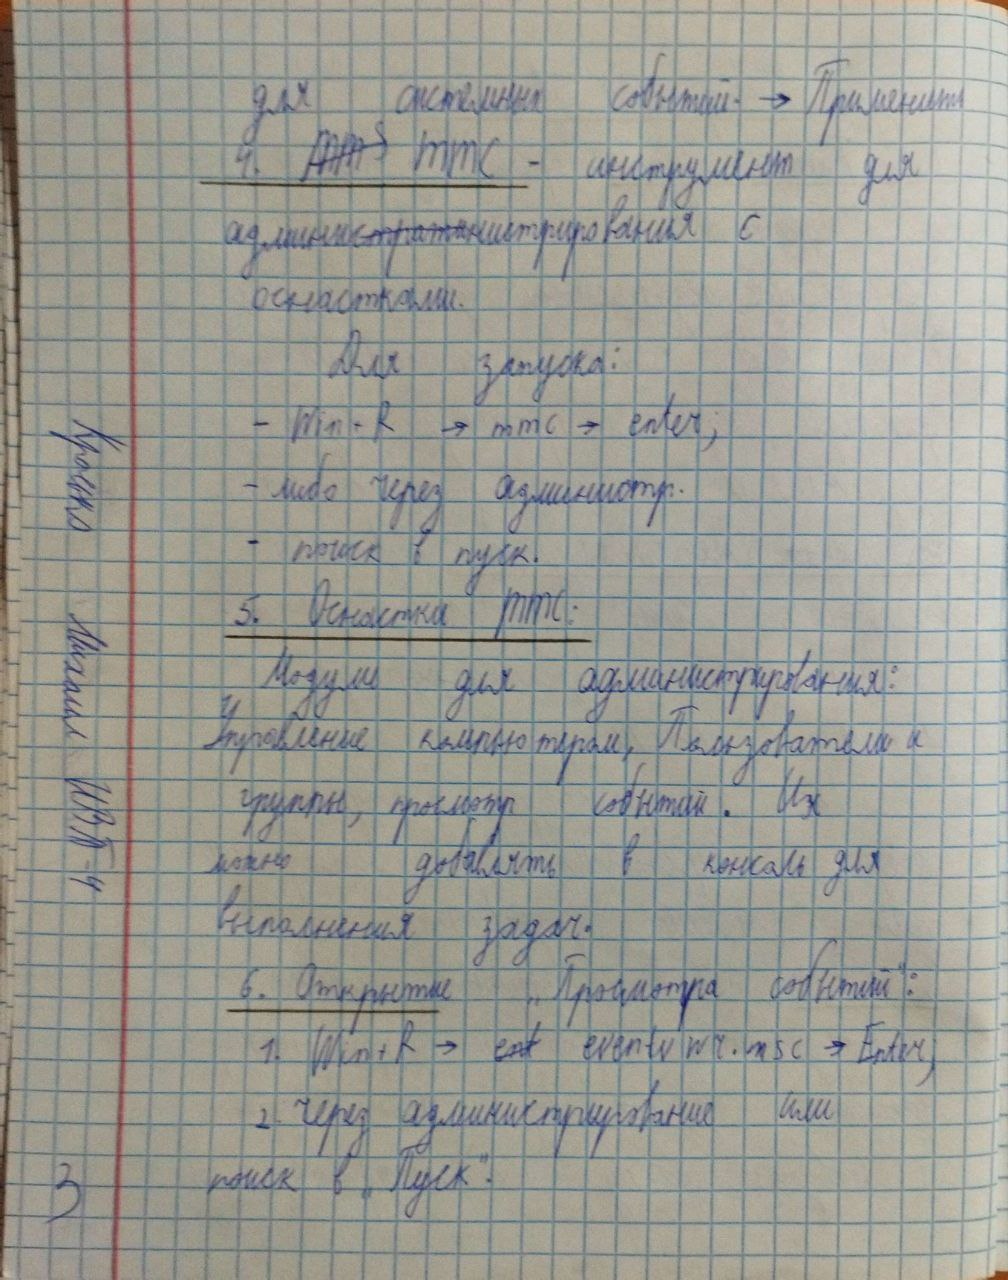 для системных событий. → Применить
4. MMC - инструмент для
администрирования с
оснастками.
Для запуска:
- Win+R → mmc → enter;
- либо через администр.
- поиск в пуск.
5. Оснастка MMC:
Модули для администрирования:
Управление компьютером, Пользователи и
группы, просмотр событий. Их
можно добавлять в консоль для
выполнения задач.
6. Открытие „Просмотра событий":
1. Win+R → eventvwr.msc → Enter;
2. Через администрирование или
поиск в „Пуск".
Михаил
3